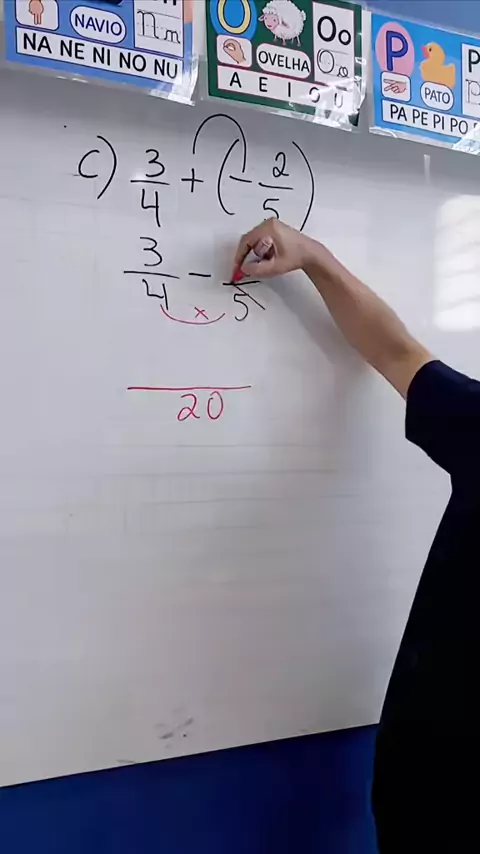 NAVIO
Nn
NA NE NI NO NU
O
Oo
OVELHA
Oo
A E I O U
P
PATO
P
PA PE PI PO
c) 3/4 + (- 2/5)
3/4 - /5
x
20